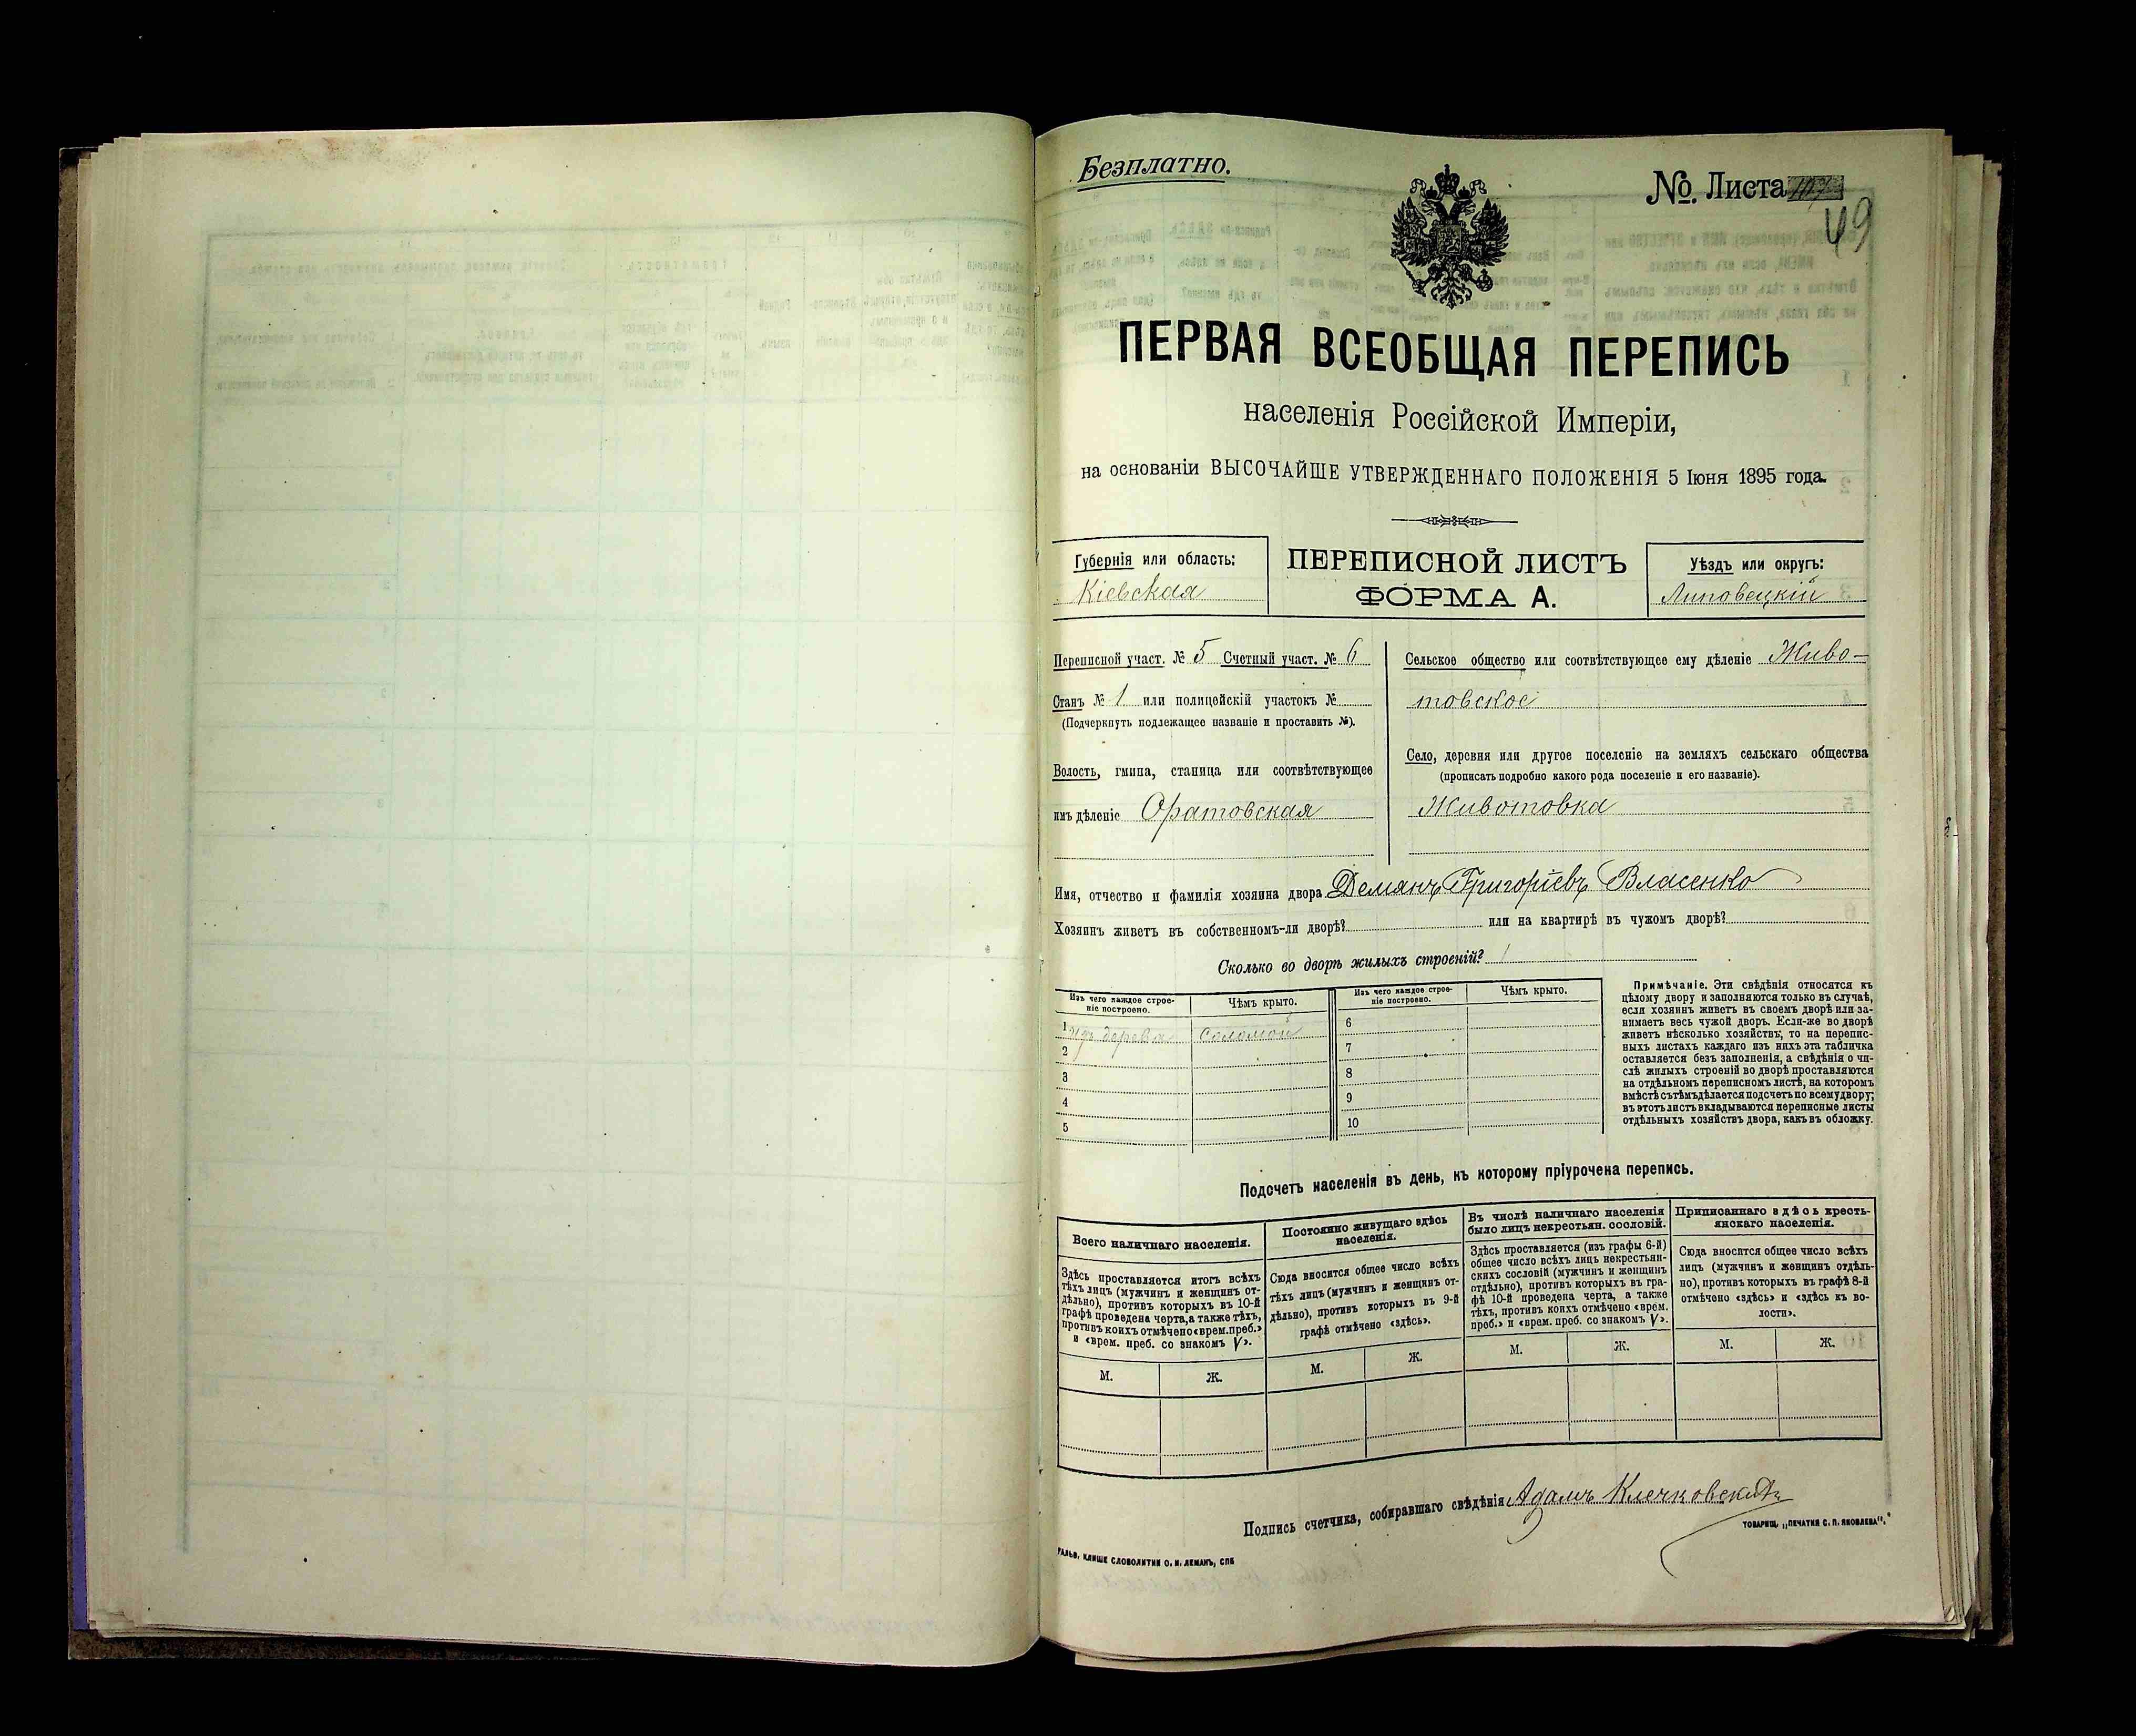 Безплатно.
№. Листа
49
ПЕРВАЯ ВСЕОБЩАЯ ПЕРЕПИСЬ
населенія Россійской Имперіи,
на основаніи ВЫСОЧАЙШЕ УТВЕРЖДЕННАГО ПОЛОЖЕНІЯ 5 Іюня 1895 года.
Губернія или область:
Кіевская
ПЕРЕПИСНОЙ ЛИСТЪ
ФОРМА А.
Уѣздъ или округъ:
Липовецкій
Переписной участ. № 5 Счетный участ. № 6
Станъ № 1 или полицейскій участокъ №
(Подчеркнуть подлежащее названіе и проставить №).
Волость, гмина, станица или соотвѣтствующее
имъ дѣленіе Оратовская
Сельское общество или соотвѣтствующее ему дѣленіе Живо-
товское
Село, деревня или другое поселеніе на земляхъ сельскаго общества
(прописать подробно какого рода поселеніе и его названіе).
Животовка
Имя, отчество и фамилія хозяина двора Демянъ Григоріевъ Власенко
Хозяинъ живетъ въ собственномъ-ли дворѣ? или на квартирѣ въ чужомъ дворѣ?
Сколько во дворѣ жилыхъ строеній? 1
Изъ чего каждое строе-
ніе построено.
Чѣмъ крыто.
Изъ чего каждое строе-
ніе построено.
Чѣмъ крыто.
1 изъ дерева соломой
2
3
4
5
6
7
8
9
10
Примѣчаніе. Эти свѣдѣнія относятся къ
цѣлому двору и заполняются только въ случаѣ,
если хозяинъ живетъ въ своемъ дворѣ или за-
нимаетъ весь чужой дворъ. Если-же во дворѣ
живетъ нѣсколько хозяйствъ, то на перепис-
ныхъ листахъ каждаго изъ нихъ эта табличка
оставляется безъ заполненія, а свѣдѣнія о чи-
слѣ жилыхъ строеній во дворѣ проставляются
на отдѣльномъ переписномъ листѣ, на которомъ
вмѣстѣ съ тѣмъ дѣлается подсчетъ по всему двору;
въ этотъ листъ вкладываются переписные листы
отдѣльныхъ хозяйствъ двора, какъ въ обложку.
Подсчетъ населенія въ день, къ которому пріурочена перепись.
Всего наличнаго населенія.
Здѣсь проставляется итогъ всѣхъ
тѣхъ лицъ (мужчинъ и женщинъ от-
дѣльно), противъ которыхъ въ 10-й
графѣ проведена черта, а также тѣхъ,
противъ коихъ отмѣчено «врем. преб.»
и «врем. преб. со знакомъ V».
М. Ж.
Постоянно живущаго здѣсь
населенія.
Сюда вносится общее число всѣхъ
тѣхъ лицъ (мужчинъ и женщинъ от-
дѣльно), противъ которыхъ въ 9-й
графѣ отмѣчено «здѣсь».
М. Ж.
Въ числѣ наличнаго населенія
было лицъ некрестьян. сословій.
Здѣсь проставляется (изъ графы 6-й)
общее число всѣхъ лицъ некрестьян-
скихъ сословій (мужчинъ и женщинъ
отдѣльно), противъ которыхъ въ гра-
фѣ 10-й проведена черта, а также
тѣхъ, противъ коихъ отмѣчено «врем.
преб.» и «врем. преб. со знакомъ V».
М. Ж.
Приписаннаго здѣсь кресть-
янскаго населенія.
Сюда вносится общее число всѣхъ
лицъ (мужчинъ и женщинъ отдѣль-
но), противъ которыхъ въ графѣ 8-й
отмѣчено «здѣсь» и «здѣсь къ во-
лости».
М. Ж.
Подпись счетчика, собиравшаго свѣдѣнія Адамъ Клечковскій
ТОВАРИЩ. „ПЕЧАТНИ С. П. ЯКОВЛЕВА".
ГАЛЬВ. КЛИШЕ СЛОВОЛИТНИ О. И. ЛЕМАНЪ, СПБ